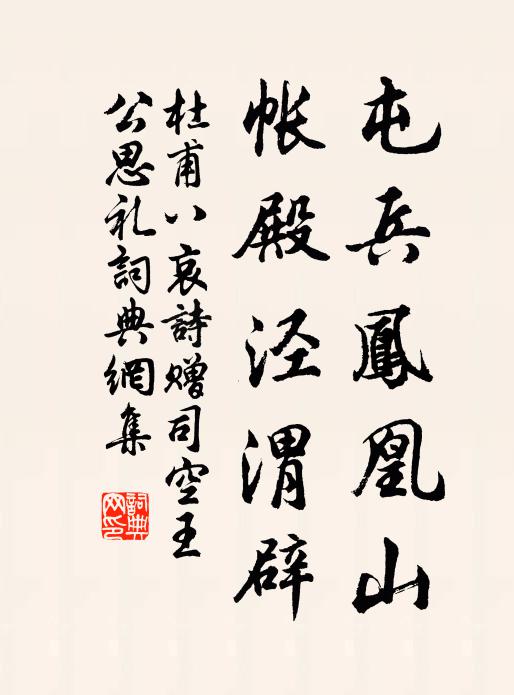 屯兵鳳凰山
帳殿泾渭辟
杜甫八哀詩贈司空王
公思礼詞典網集
詞典
网印